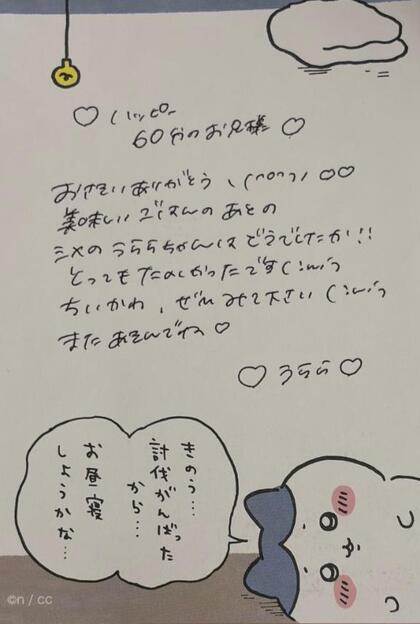 ♡ ハッピー
60分のお兄様 ♡
おさそいありがとう \(^o^)/ ♡♡
美味しいごはんのあとの
シメのうららちゃんはどうでしたか!!
とってもたのしかったです(:w;)
ちいかわ、ぜひみて下さい (:w;)
またあそんでね♡
♡ うらら ♡
きのう…
討伐がんばった
から…
お昼寝
しようかな…
©n / cc